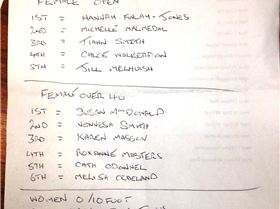 FEMALE OPEN
1ST = HANNAH FINLAY-JONES
2ND = MICHELLE MALMEDAL
3RD = TIAHN SMITH
4TH = CHLOE WALKERDEN
5TH = JILL MELHUISH
FEMALE OVER 40
1ST = SUSAN McDONALD
2ND = VENNESSA SMITH
3RD = KAREN MASSON
4TH = ROXANNE MASTERS
5TH = CATH ODONNEL
6TH = MELISA COPELAND
WOMEN O/10 FOOT